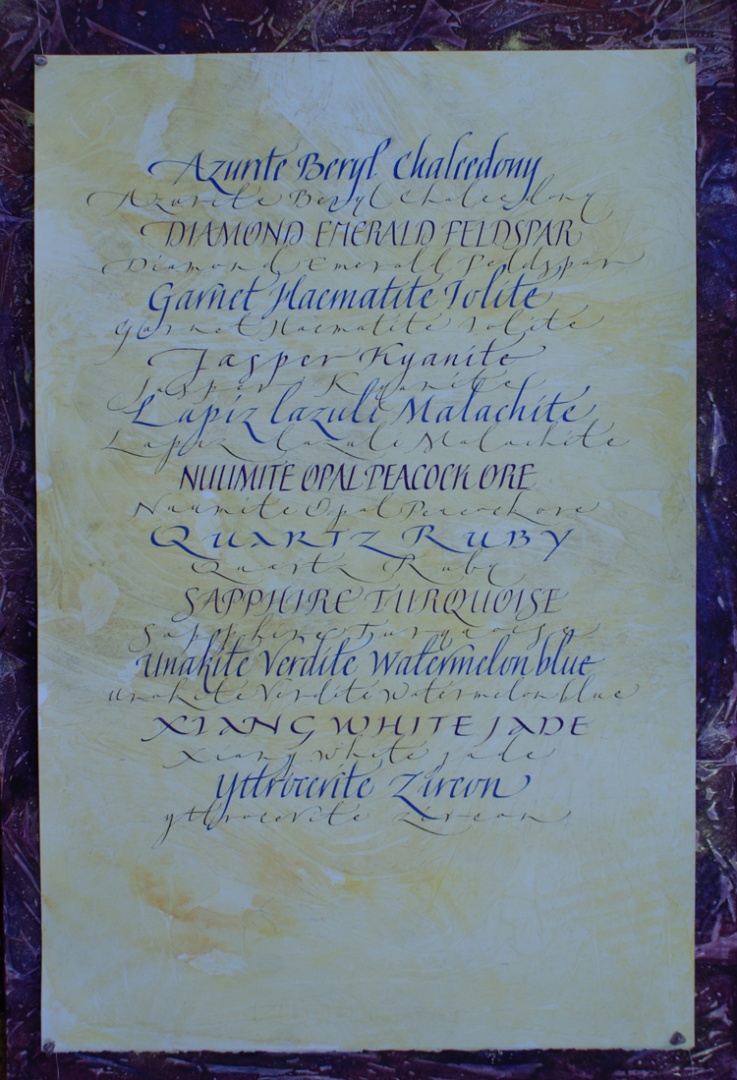 Azurite Beryl Chalcedony
Azurite Beryl Chalcedony
DIAMOND EMERALD FELDSPAR
Diamond Emerald Feldspar
Garnet Haematite Iolite
Garnet Haematite Iolite
Jasper Kyanite
Jasper Kyanite
Lapiz lazuli Malachite
Lapiz lazuli Malachite
NUUMITE OPAL PEACOCK ORE
Nuumite Opal Peacock ore
QUARTZ RUBY
Quartz Ruby
SAPPHIRE TURQUOISE
Sapphire Turquoise
Unakite Verdite Watermelon blue
Unakite Verdite Watermelon blue
XIANG WHITE JADE
Xiang White jade
Yttrocerite Zircon
yttrocerite zircon